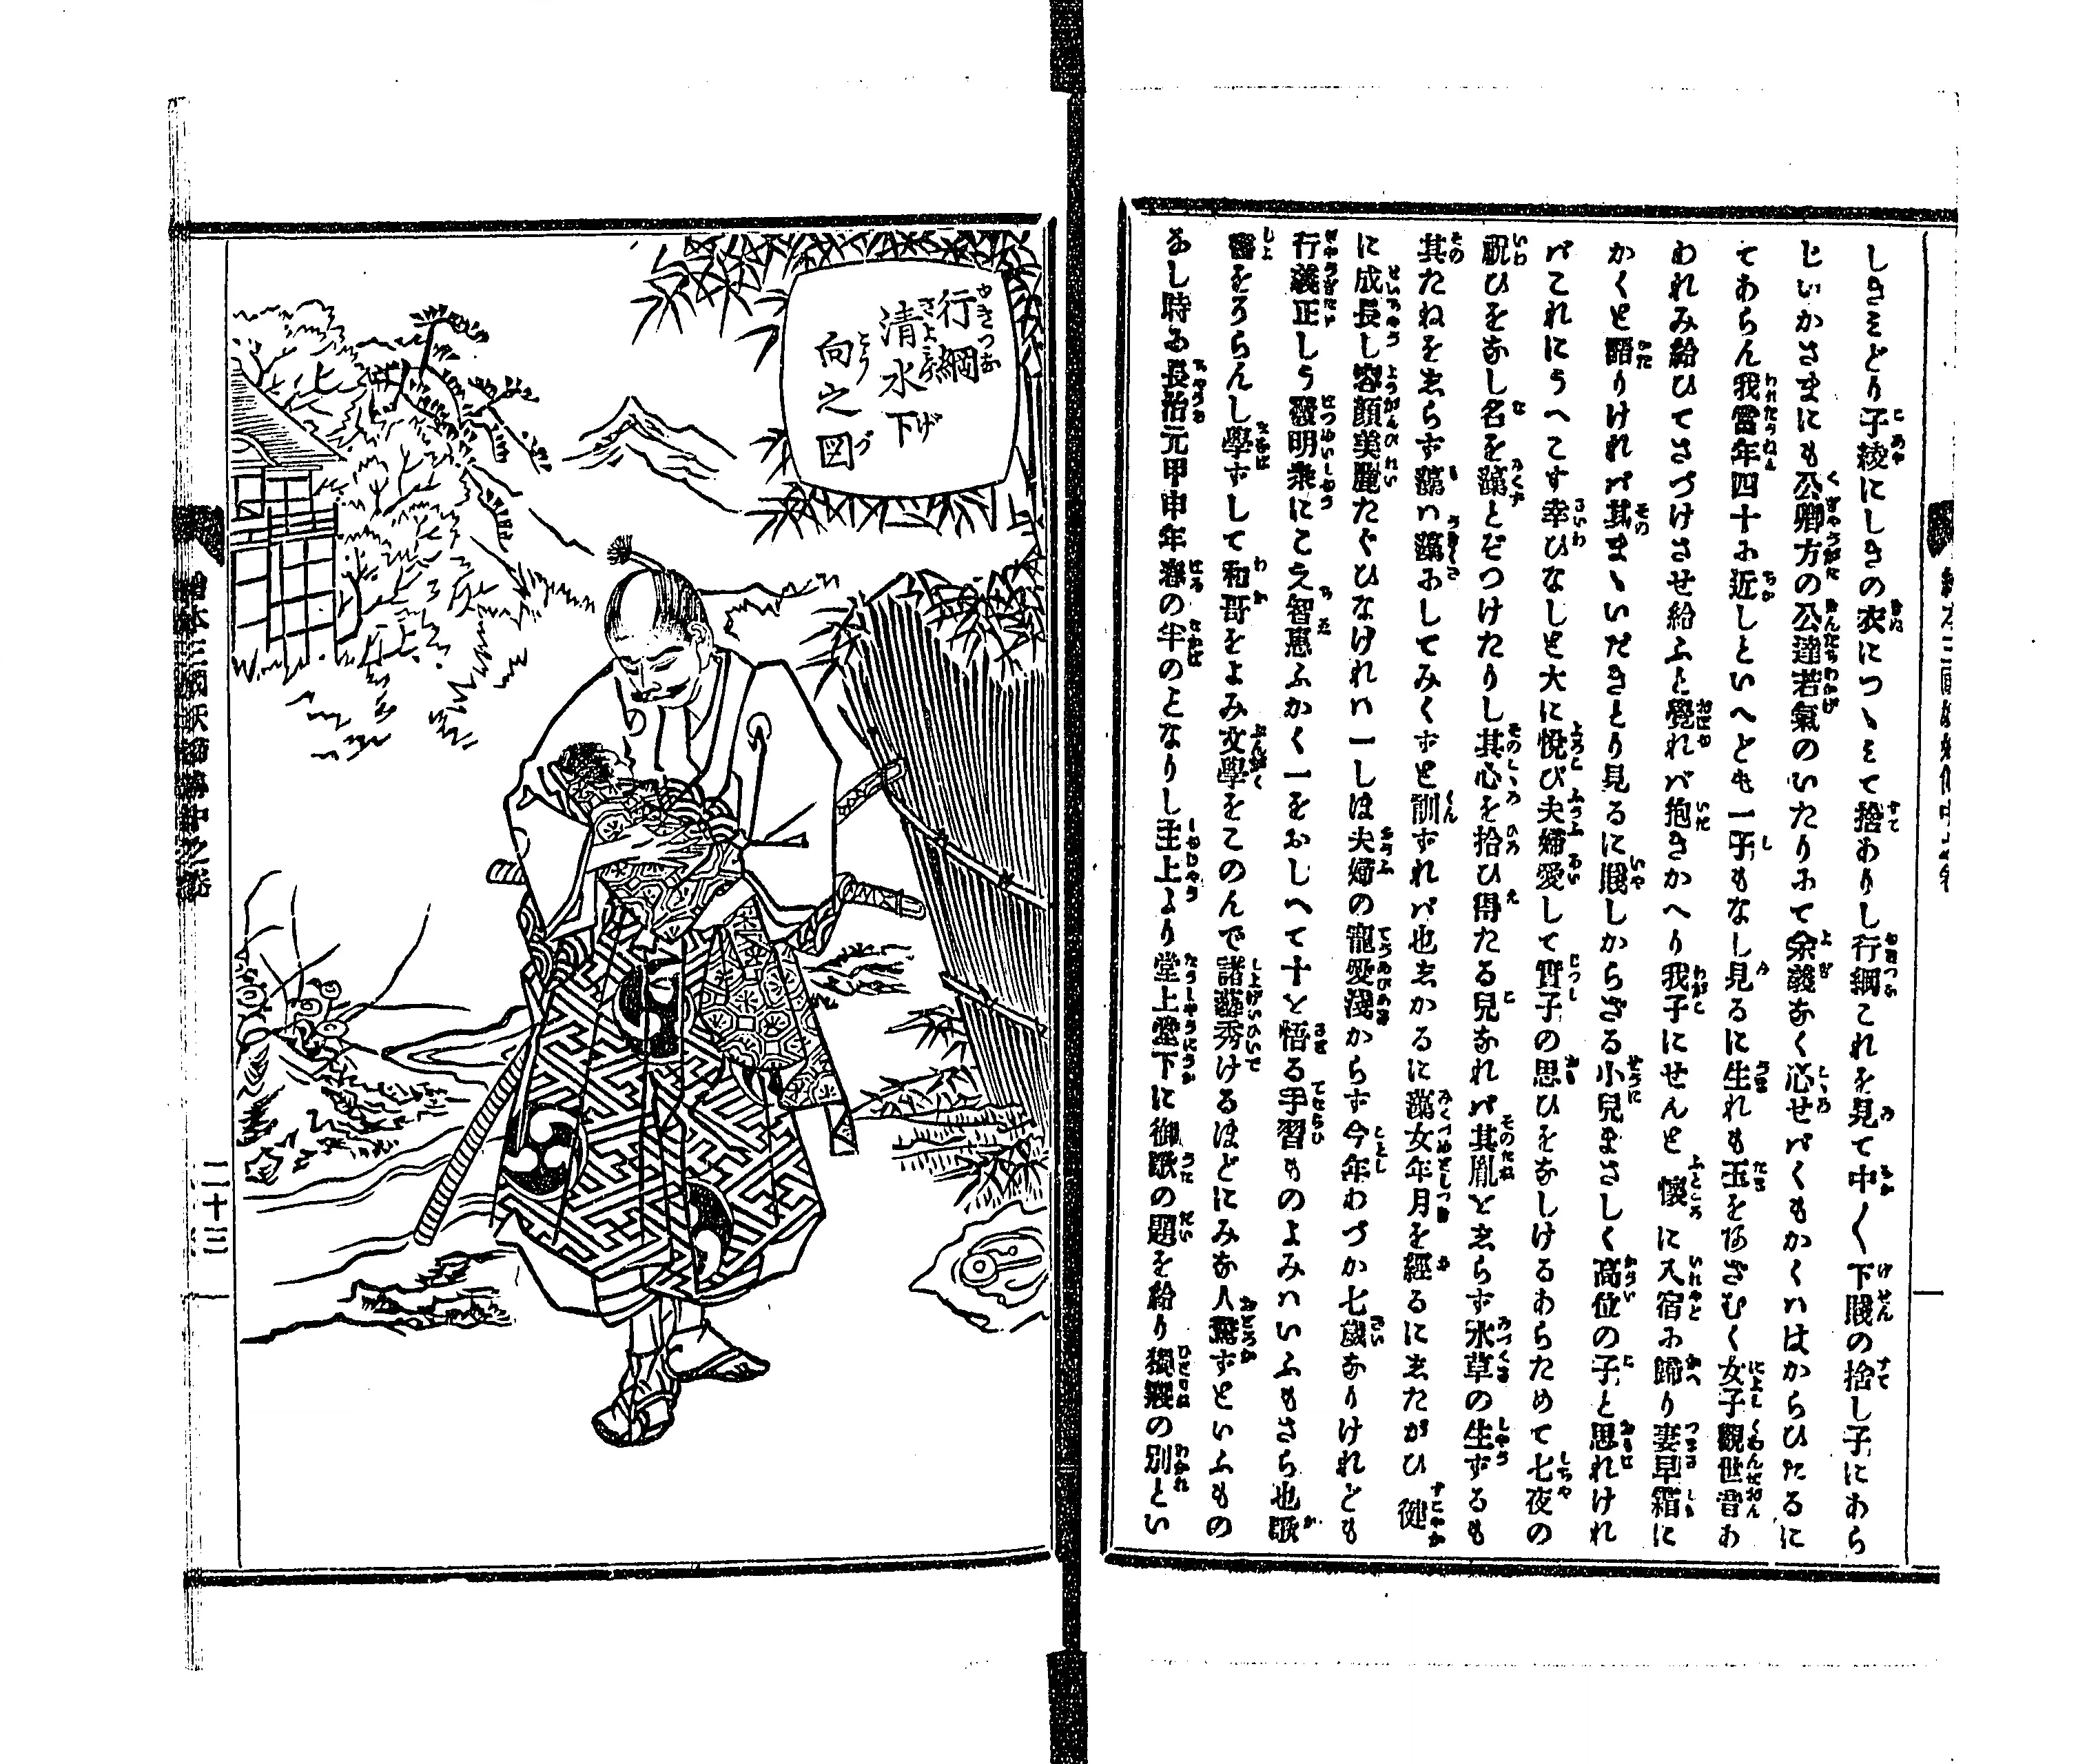 しきみどり子綾にしきの衣につゝみて捨ありし行綱これを見て中〱下賤の捨し子にあら
じいかさまにも公卿方の公達若氣のいたりにて余義なく心せバくもかくハはからひたるに
てあらん我當年四十に近しといへども一子もなし見るに生れも玉をあざむく女子觀世音あ
われみ給ひてさづけさせ給ふと覺れバ抱きかへり我子にせんと懷に入宿に歸り妻早霜に
かくと語りけれバ其まゝいだきとり見るに賤しからざる小兒まさしく高位の子と思れけれ
バこれにうへこす幸ひなしと大に悅び夫婦愛して實子の思ひをなしけるあらためて七夜の
祝ひをなし名を藻とぞつけたりし其心を拾ひ得たる兒なれバ其胤とゑらず水草の生ずるも
其たねをゑらず藻ハ藻にしてみくずと訓ずれバ也ゑかるに藻女年月を經るにゑたがひ健
に成長し容顏美麗たぐひなけれハ一しほ夫婦の寵愛淺からず今年わづか七歲なりけれども
行義正しう發明衆にこえ智惠ふかく一をおしへて十と悟る手習ものよみハいふもさら也歌
書をそらんし學ずして和哥をよみ文學をこのんで諸藝秀けるほどにみな人驚ずといふもの
なし時に長治元甲申年春の半のとなりし主上より堂上堂下に御歌の題を給り獨寢の別とい
行綱
ゆきつな
清水下
きよみづげ
向之図
こうづ
二十三